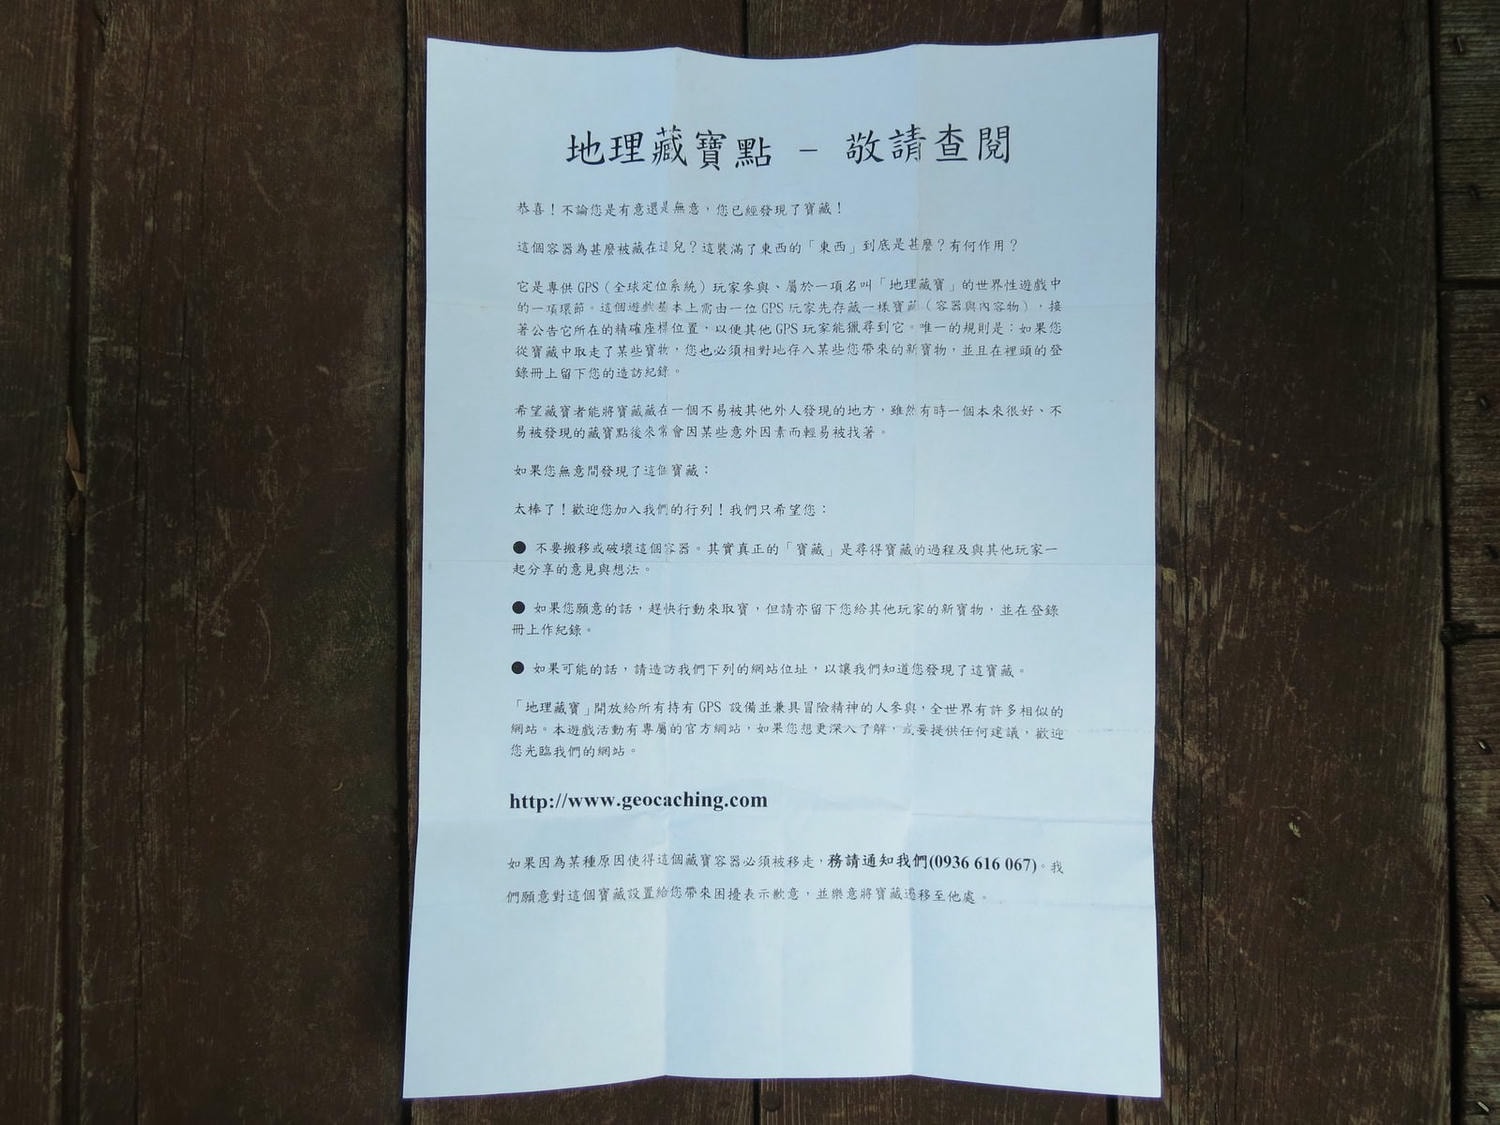 地理藏寶點 – 敬請查閱
恭喜！不論您是有意還是無意，您已經發現了寶藏！
這個容器為甚麼被藏在這兒？這裝滿了東西的「東西」到底是甚麼？有何作用？
它是專供 GPS（全球定位系統）玩家參與、屬於一項名叫「地理藏寶」的世界性遊戲中
的一項環節。這個遊戲基本上需由一位 GPS 玩家先存藏一樣寶藏（容器與內容物），接
著公告它所在的精確座標位置，以便其他 GPS 玩家能獵尋到它。唯一的規則是：如果您
從寶藏中取走了某些寶物，您也必須相對地存入某些您帶來的新寶物，並且在裡頭的登
錄冊上留下您的造訪紀錄。
希望藏寶者能將寶藏藏在一個不易被其他外人發現的地方，雖然有時一個本來很好、不
易被發現的藏寶點後來常會因某些意外因素而輕易被找著。
如果您無意間發現了這個寶藏：
太棒了！歡迎您加入我們的行列！我們只希望您：
● 不要搬移或破壞這個容器。其實真正的「寶藏」是尋得寶藏的過程及與其他玩家一
起分享的意見與想法。
● 如果您願意的話，趕快行動來取寶，但請亦留下您給其他玩家的新寶物，並在登錄
冊上作紀錄。
● 如果可能的話，請造訪我們下列的網站位址，以讓我們知道您發現了這寶藏。
「地理藏寶」開放給所有持有 GPS 設備並兼具冒險精神的人參與，全世界有許多相似的
網站。本遊戲活動有專屬的官方網站，如果您想更深入了解，或要提供任何建議，歡迎
您光臨我們的網站。
http://www.geocaching.com
如果因為某種原因使得這個藏寶容器必須被移走，務請通知我們(0936 616 067)。我
們願意對這個寶藏設置給您帶來困擾表示歉意，並樂意將寶藏遷移至他處。